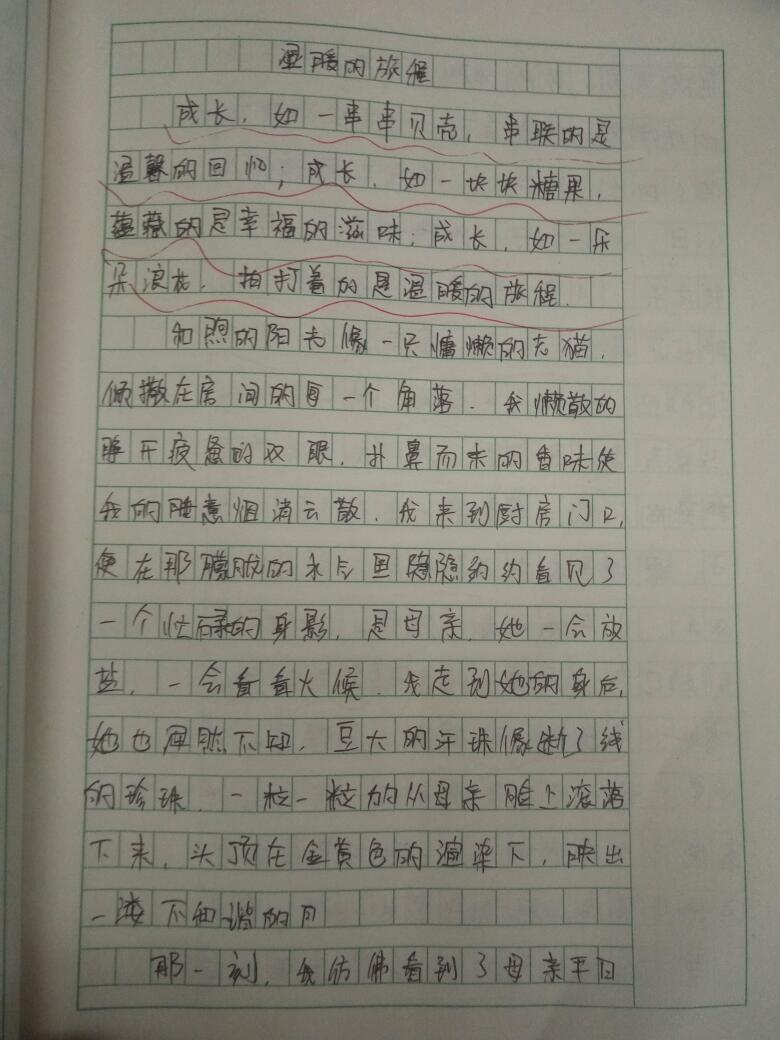 温暖的旅程
成长，如一串串贝壳，串联的是
温馨的回忆；成长，如一块块糖果，
蕴藏的是幸福的滋味；成长，如一朵
朵浪花，拍打着的是温暖的旅程．
和煦的阳光像一只慵懒的老猫，
倾撒在房间的每一个角落．我懒散的
睁开疲惫的双眼，扑鼻而来的香味使
我的睡意烟消云散．我来到厨房门口，
便在那朦胧的水气里隐隐约约看见了
一个忙碌的身影，是母亲．她一会放
盐，一会看看火候．我走到她的身后，
她也浑然不知，豆大的汗珠像断了线
的珍珠．一粒一粒的从母亲脸上滚落
下来，头顶在金黄色的渲染下，映出
一缕不和谐的
那一刻，我仿佛看到了母亲平日